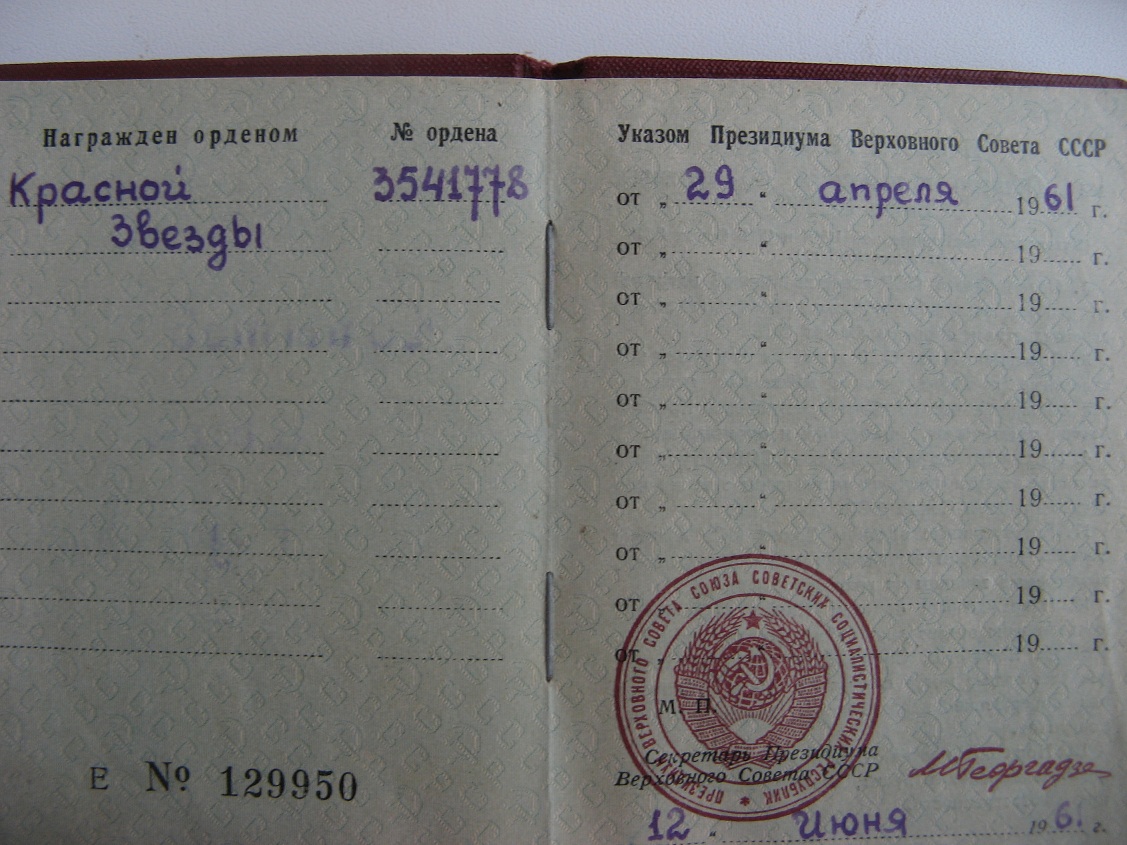 Награжден орденом № ордена
Красной 3541778
Звезды
Е № 129950
Указом Президиума Верховного Совета СССР
от „ 29 “ апреля 1961 г.
от „ “ 19 г.
от „ “ 19 г.
от „ “ 19 г.
от „ “ 19 г.
от „ “ 19 г.
от „ “ 19 г.
от „ “ 19 г.
от „ “ 19 г.
от „ “ 19 г.
ПРЕЗИДИУМ ВЕРХОВНОГО СОВЕТА СОЮЗА СОВЕТСКИХ СОЦИАЛИСТИЧЕСКИХ РЕСПУБЛИК
М. П.
Секретарь Президиума
Верховного Совета СССР МГеоргадзе
12 “ Июня 1961 г.